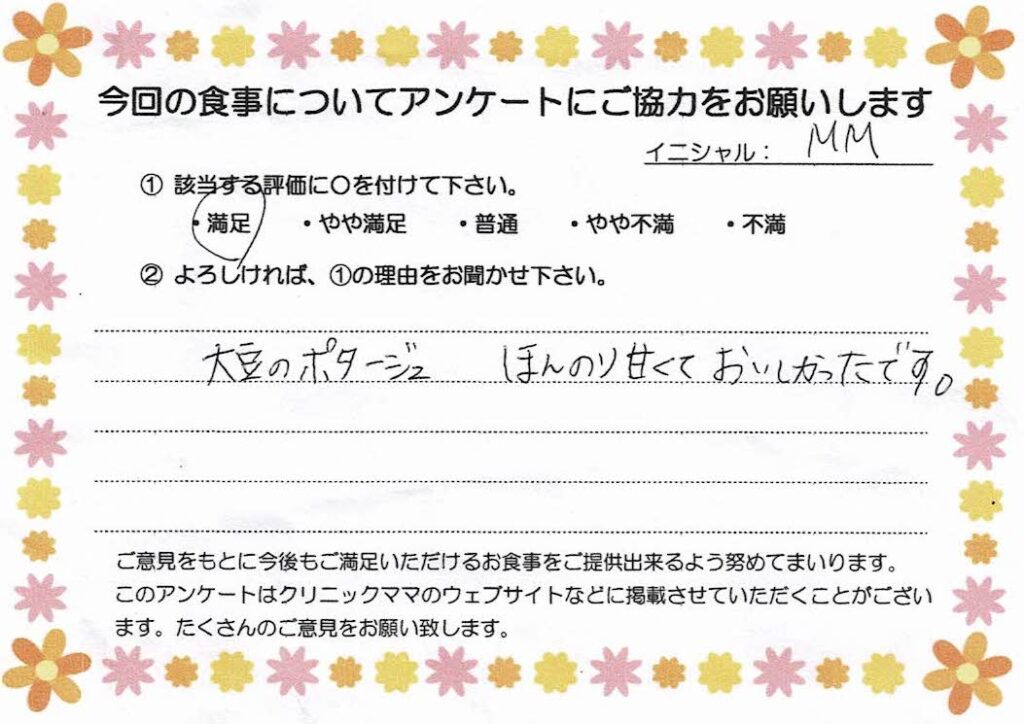 今回の食事についてアンケートにご協力をお願いします
イニシャル： MM
① 該当する評価に〇を付けて下さい。
・満足 ・やや満足 ・普通 ・やや不満 ・不満
② よろしければ、①の理由をお聞かせ下さい。
大豆のポタージュ ほんのり甘くておいしかったです。
ご意見をもとに今後もご満足いただけるお食事をご提供出来るよう努めてまいります。
このアンケートはクリニックママのウェブサイトなどに掲載させていただくことがござい
ます。たくさんのご意見をお願い致します。